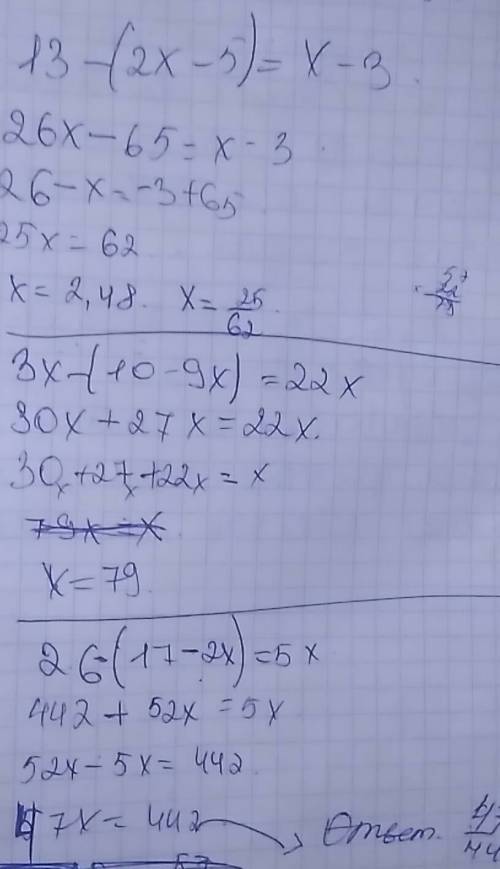 13-(2x-5)=x-3.
26x-65=x-3.
26-x=-3+65
25x=62
x=2,48. x=25/62.
3x-(10-9x)=22x
30x+27x=22x.
30x+27x+22x=x
79x=x
x=79.
26-(17-2x)=5x
442+52x=5x
52x-5x=442.
47x=442
Ответ.